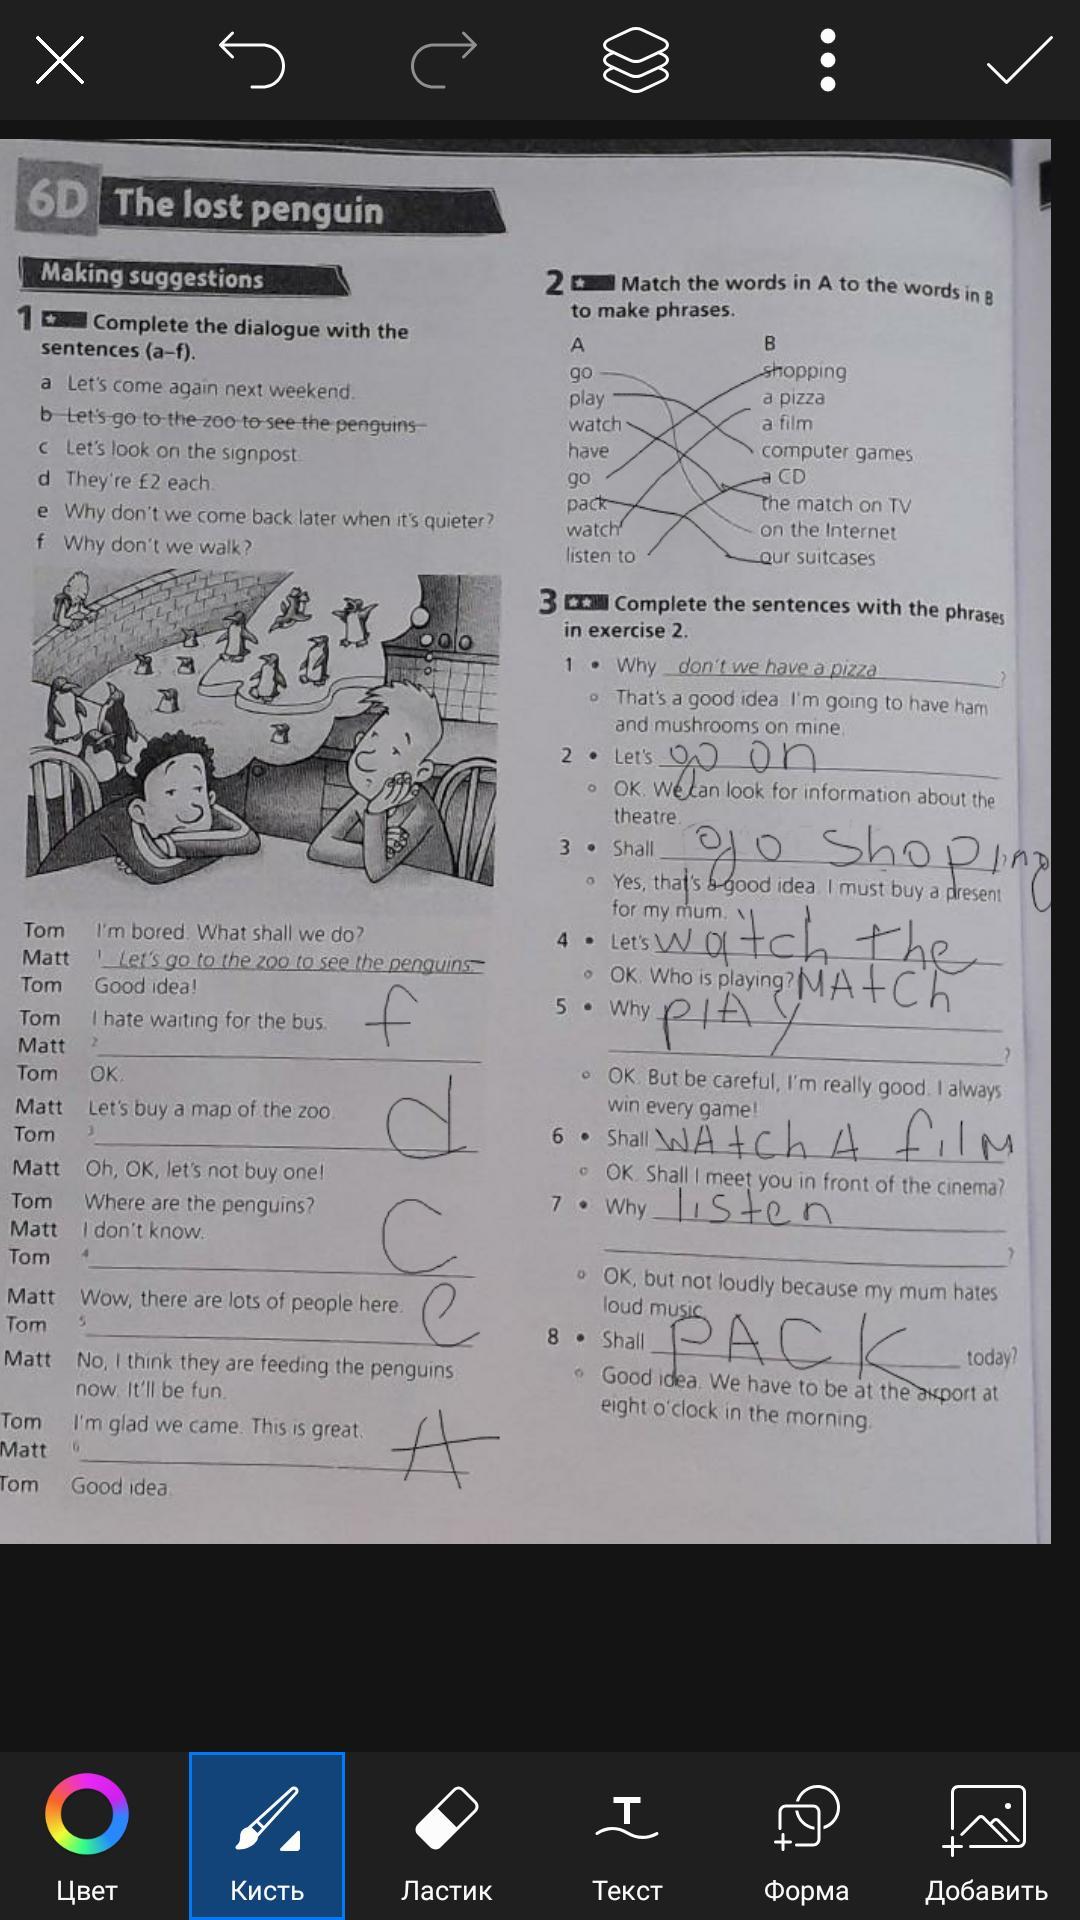 6D The lost penguin
Making suggestions
1 Complete the dialogue with the
sentences (a–f).
a Let's come again next weekend.
b Let's go to the zoo to see the penguins
c Let's look on the signpost.
d They're £2 each.
e Why don't we come back later when it's quieter?
f Why don't we walk?
Tom I'm bored. What shall we do?
Matt 1 Let's go to the zoo to see the penguins.
Tom Good idea!
Tom I hate waiting for the bus.
Matt 2 f
Tom OK.
Matt Let's buy a map of the zoo.
Tom 3 d
Matt Oh, OK, let's not buy one!
Tom Where are the penguins?
Matt I don't know.
Tom 4 C
Matt Wow, there are lots of people here.
Tom 5 e
Matt No, I think they are feeding the penguins
now. It'll be fun.
Tom I'm glad we came. This is great.
Matt 6 A
Tom Good idea.
2 Match the words in A to the words in B
to make phrases.
A B
go shopping
play a pizza
watch a film
have computer games
go a CD
pack the match on TV
watch on the Internet
listen to our suitcases
3 Complete the sentences with the phrases
in exercise 2.
1 • Why don't we have a pizza ?
That's a good idea. I'm going to have ham
and mushrooms on mine.
2 • Let's go on
OK. We can look for information about the
theatre.
3 • Shall go shoping
Yes, that's a good idea. I must buy a present
for my mum.
4 • Let's watch the
OK. Who is playing? MAtCh
5 • Why plAy
?
OK. But be careful, I'm really good. I always
win every game!
6 • Shall WAtch A film
OK. Shall I meet you in front of the cinema?
7 • Why listen
?
OK, but not loudly because my mum hates
loud music.
8 • Shall PACK today?
Good idea. We have to be at the airport at
eight o'clock in the morning.
Цвет
Кисть
Ластик
Текст
Форма
Добавить